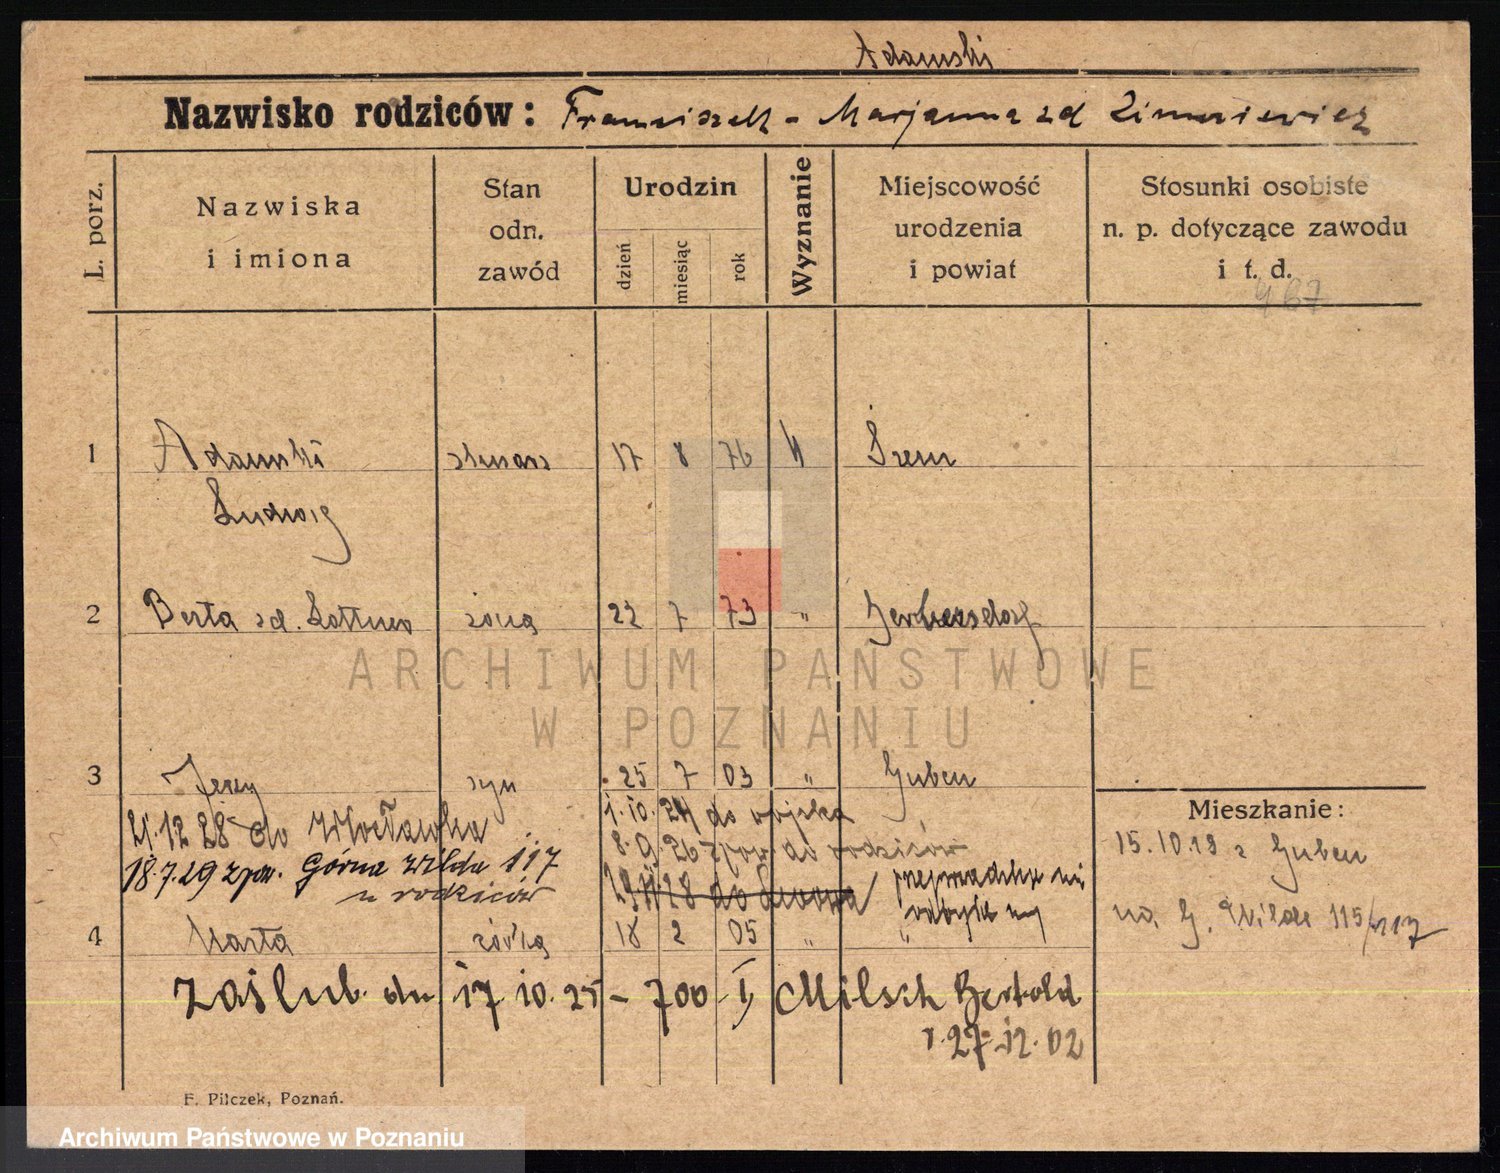 Adamski
Nazwisko rodziców: Franciszek - Marjanna zd Zimniewicz
L. porz.
Nazwiska
i imiona
Stan
odn.
zawód
Urodzin
dzień
miesiąc
rok
Wyznanie
Miejscowość
urodzenia
i powiat
Stosunki osobiste
n. p. dotyczące zawodu
i t. d.
1 Adamski 17 8 76 Śrem
Ludwig
2 Berta zd. żona 22 7 73 "
ARCHIWUM PAŃSTWOWE
W POZNANIU
3 Jerzy syn 25 7 03 " Guben
1.10.24 do wojska
21.12.28 do Włocławka
8.9.26 zpow do rodziców
18.7.29 zpow. Górna Wilda 117
u rodziców
28 do
4 Marta córka 18 2 05 "
zaślub. dn 17.10.25 - 700 I, Milsch Bertold
27.12.02
Mieszkanie:
15.10.19 z Guben
na G. Wilda 115/117
F. Pilczek, Poznań.
Archiwum Państwowe w Poznaniu